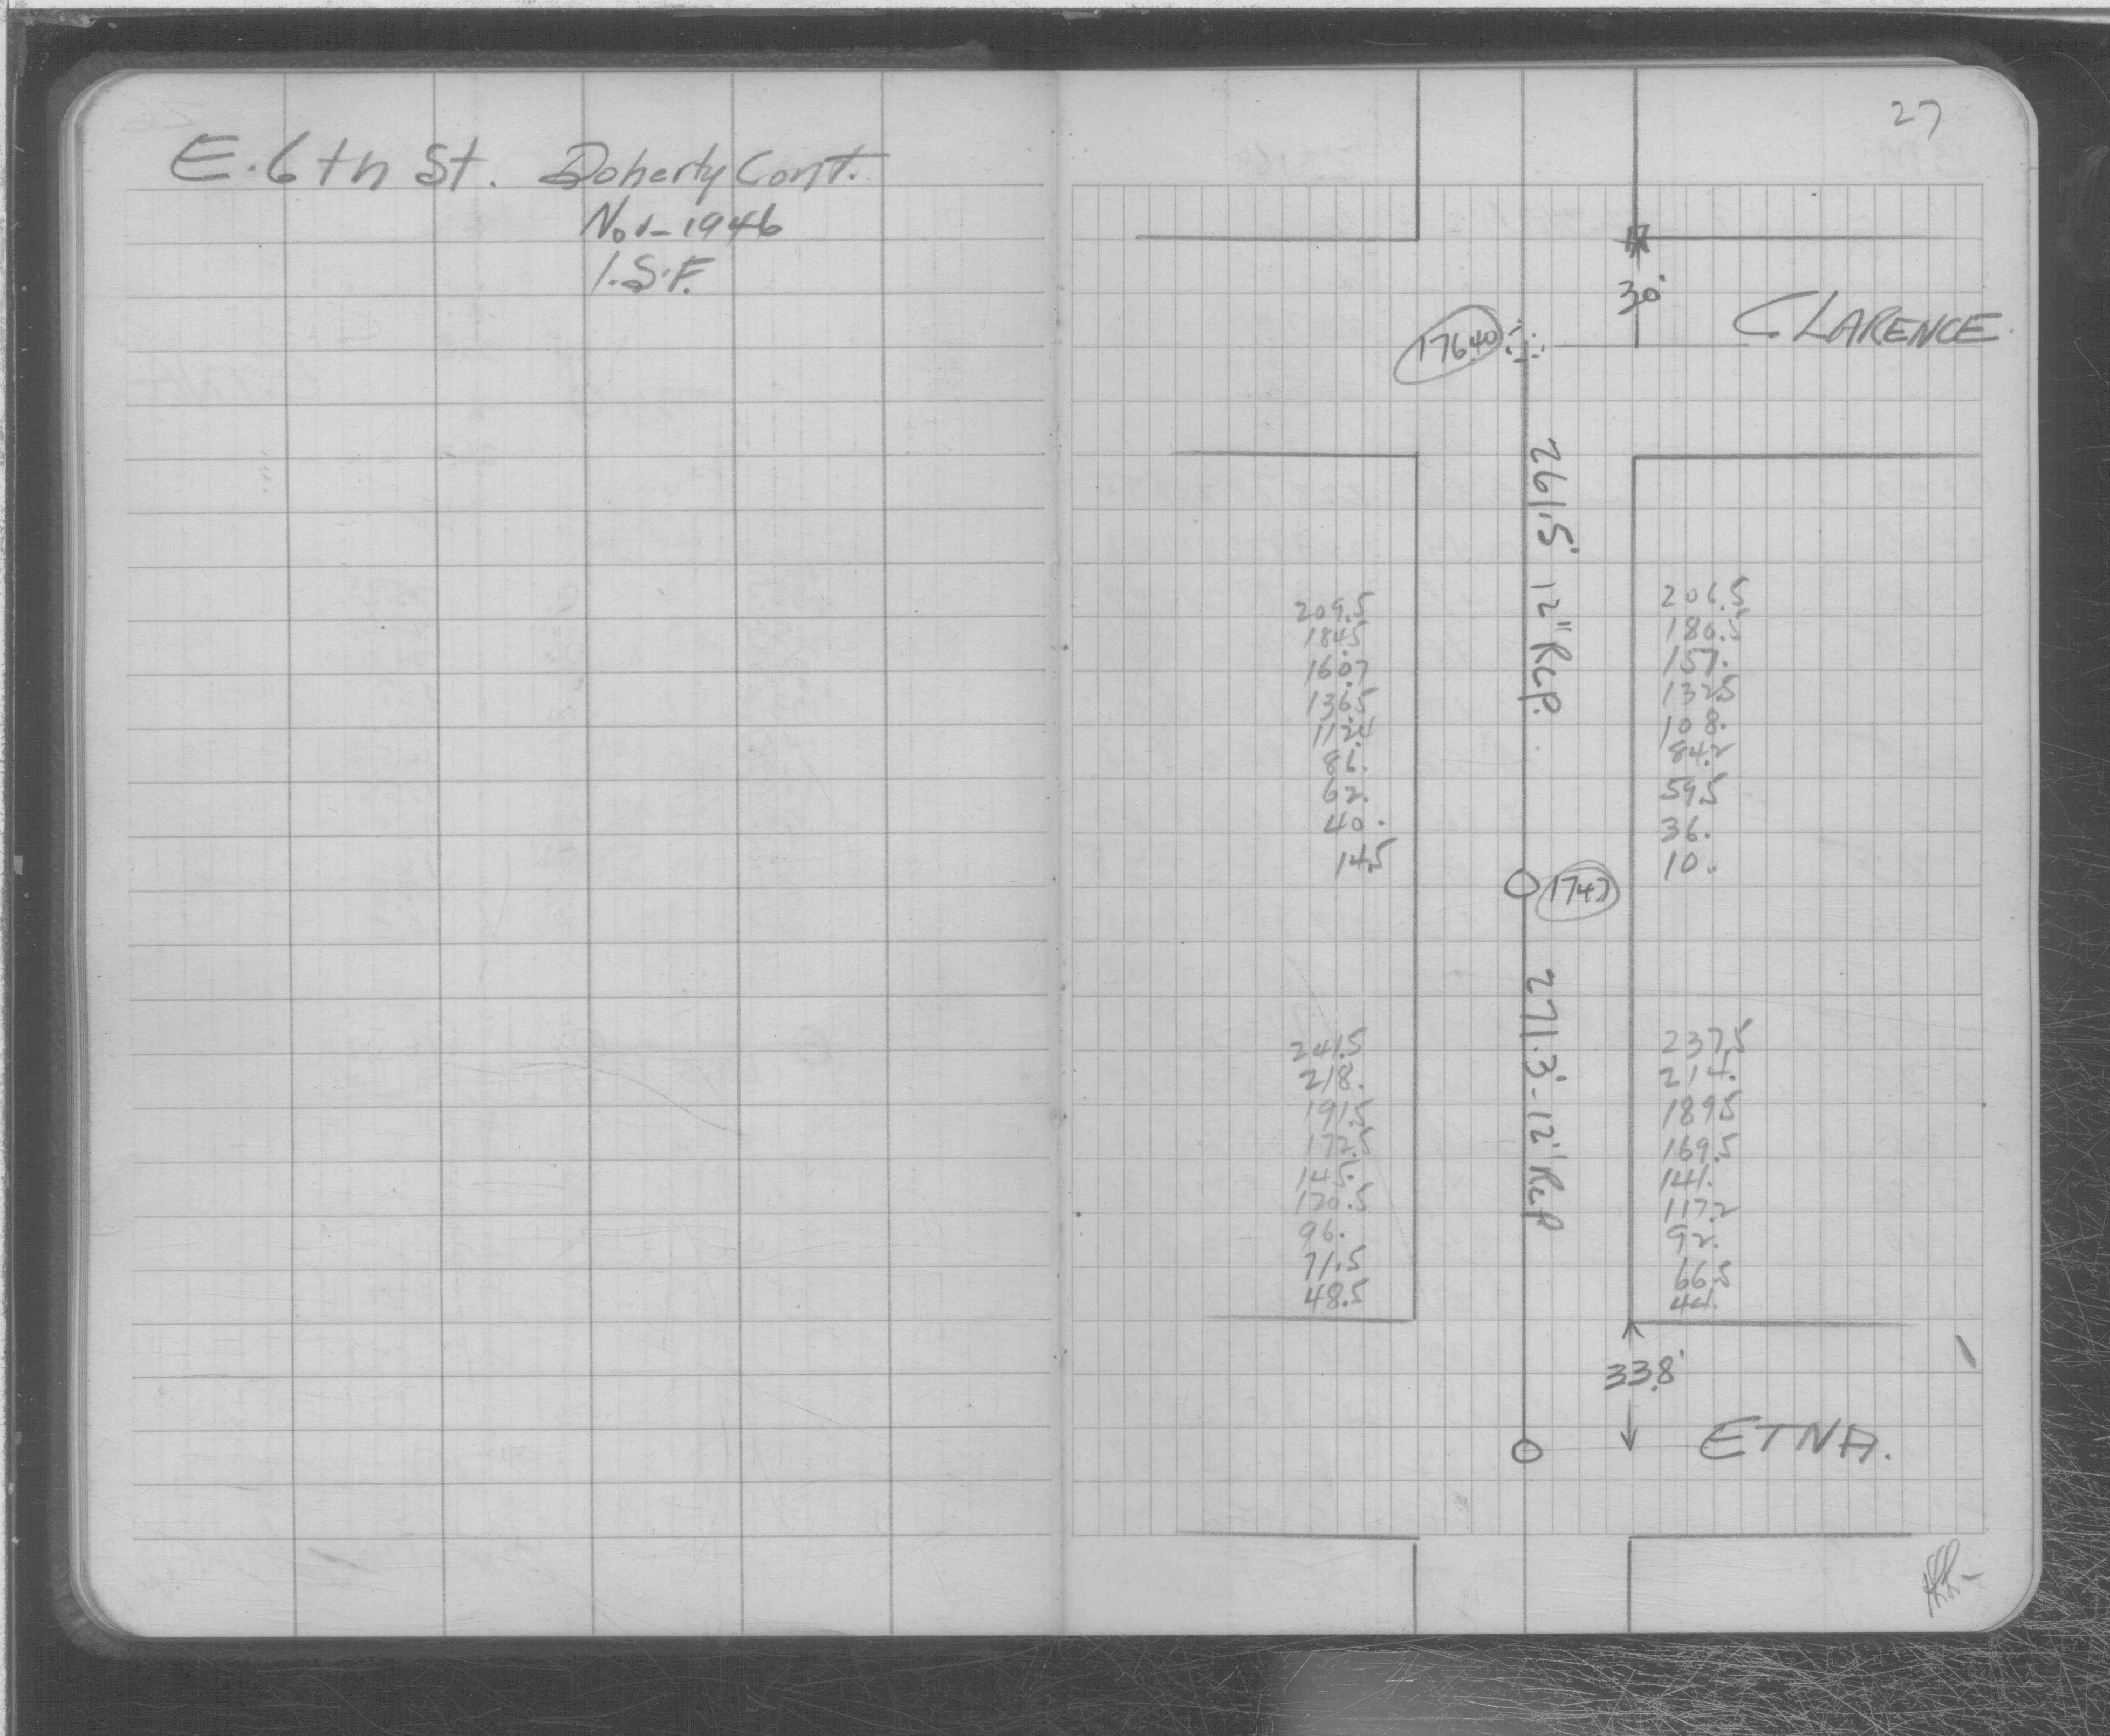 E. 6th St. Doherty Cont.
Nov-1946
I.S.F.
27
30'
CLARENCE.
17640
261.5' 12" Rcp.
209.5
184.5
160.7
136.5
112.4
86.
62.
40.
14.5
206.5
180.5
157.
132.5
108.
84.2
59.5
36.
10.
1747
271.3'-12" Rcp
241.5
218.
191.5
172.5
145.
120.5
96.
71.5
48.5
237.5
214.
189.5
169.5
141.
117.2
92.
66.5
44.
33.8'
ETNA.